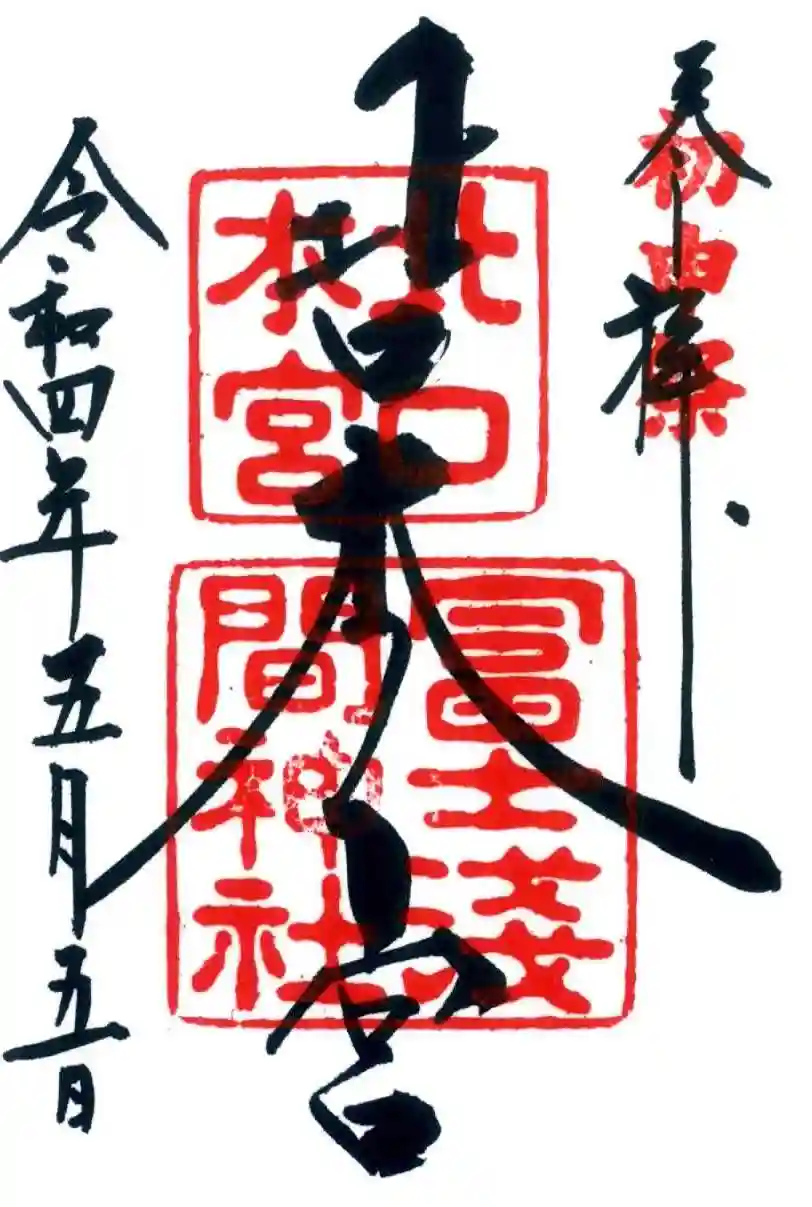 奉拝
初申祭
北口本宮
北口
本宮
冨士淺
間神社
令和四年五月五日